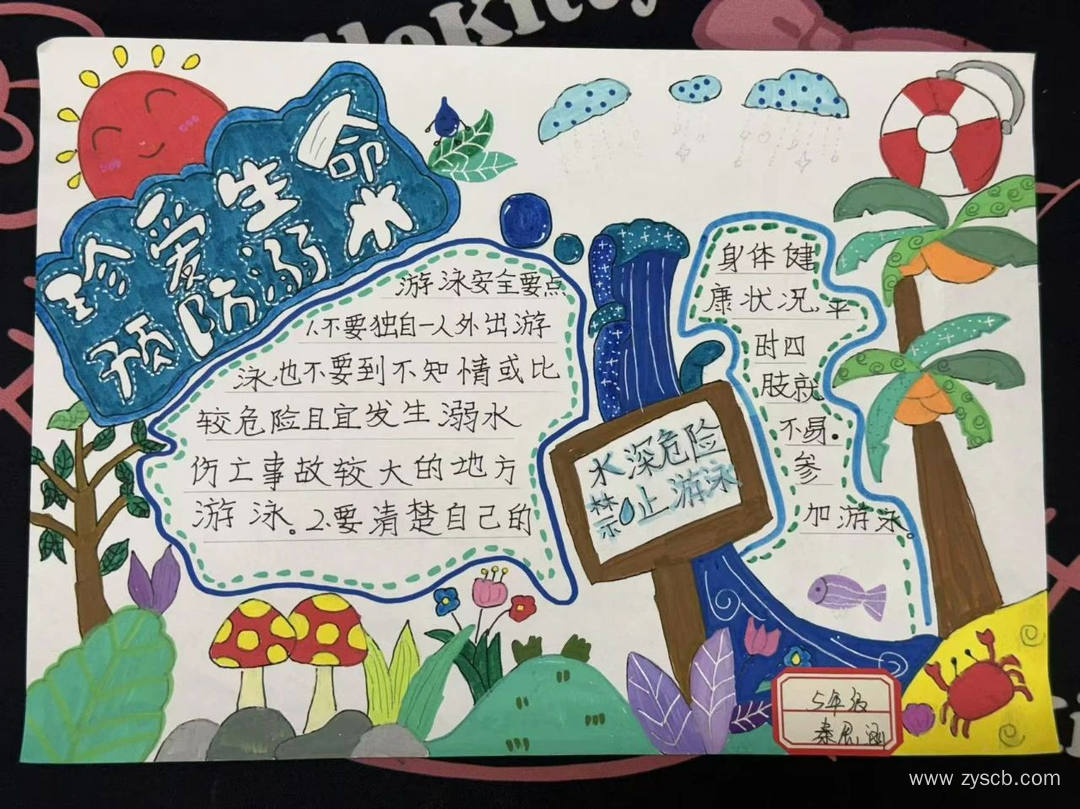 HelloKitty
珍爱生命
预防溺水
游泳安全要点
1.不要独自一人外出游
泳也不要到不知情或比
较危险且宜发生溺水
伤亡事故较大的地方
游泳。2.要清楚自己的
水深危险
禁止游泳
身体健
康状况,平
时四
肢就
不易.
参
加游泳。
5年级
www.zyscb.com